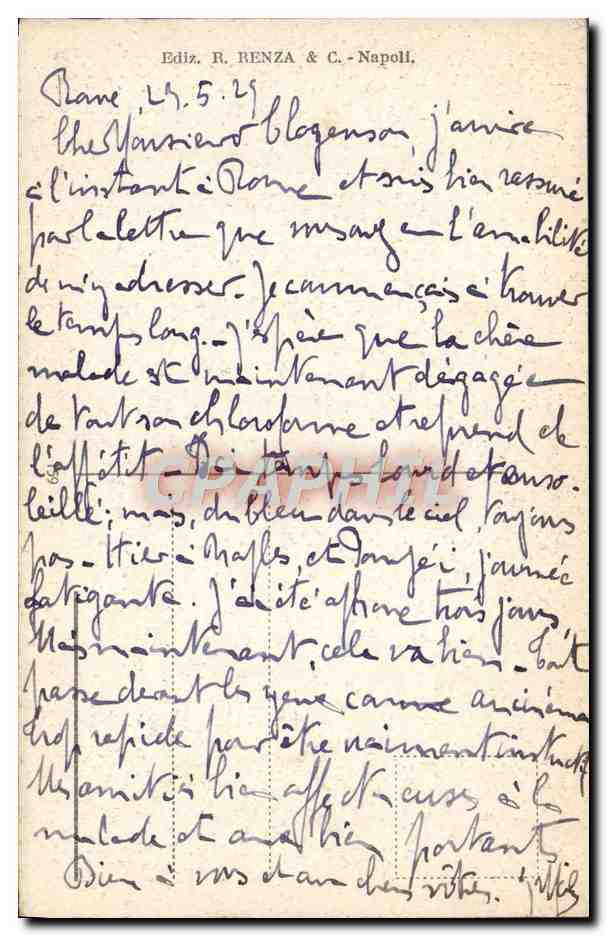 Ediz. R. RENZA & C. - Napoli.
Rome, 29.5.29
Cher Monsieur Clogenson, j'arrive
à l'instant à Rome et suis bien rassuré
par la lettre que vous avez eu l'amabilité
de m'y adresser. Je commençais à trouver
le temps long. J'espère que la chère
malade est maintenant dégagée
de tout son chloroforme et reprend de
l'appétit. Ici temps lourd et enso-
leillé; mais, du bleu dans le ciel, toujours
pas. Hier à Naples, et Pompéi, journée
fatigante. J'ai été aphone trois jours,
Mais maintenant, cela va bien. Tout
passe devant les yeux comme au cinéma
trop rapide pour être vraiment instructif
Mes amitiés bien affectueuses à la
malade et aux bien portants
Bien à vous et aux chers vôtres.
CPAPHIL